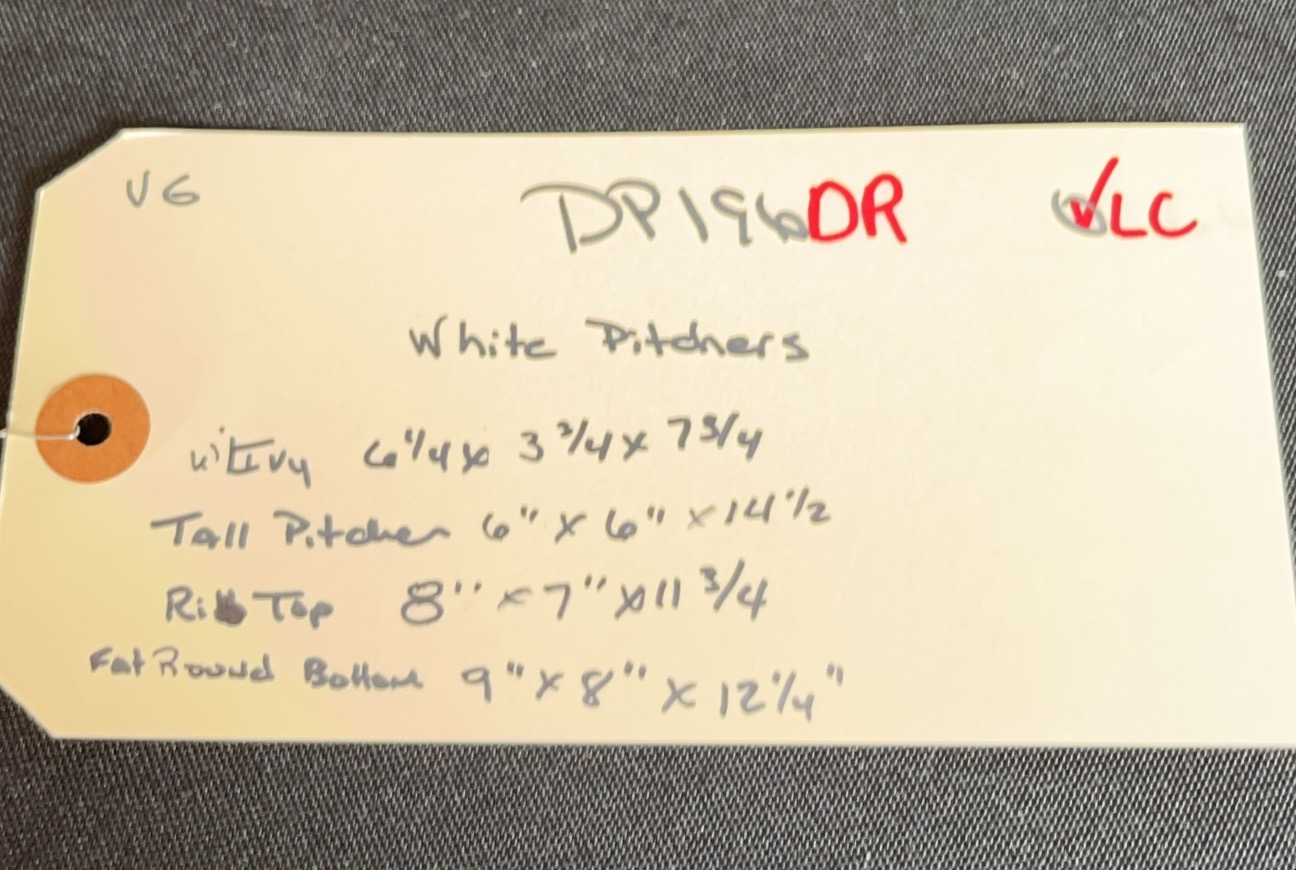 VG DP196DR ✓LC
White Pitchers
w/Ivy 6 1/4 x 3 3/4 x 7 3/4
Tall Pitcher 6" x 6" x 14 1/2
Rib Top 8" x 7" x 11 3/4
Fat Round Bottom 9" x 8" x 12 1/4"